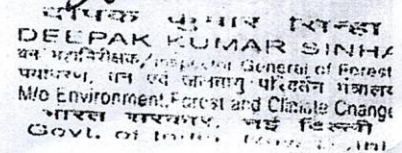 दीपक कुमार सिन्हा
DEEPAK KUMAR SINHA
वन महानिरीक्षक/Inspector General of Forest
पर्यावरण, वन एवं जलवायु परिवर्तन मंत्रालय
M/o Environment,Forest and Climate Change
भारत सरकार, नई दिल्ली
Govt. of India, New Delhi